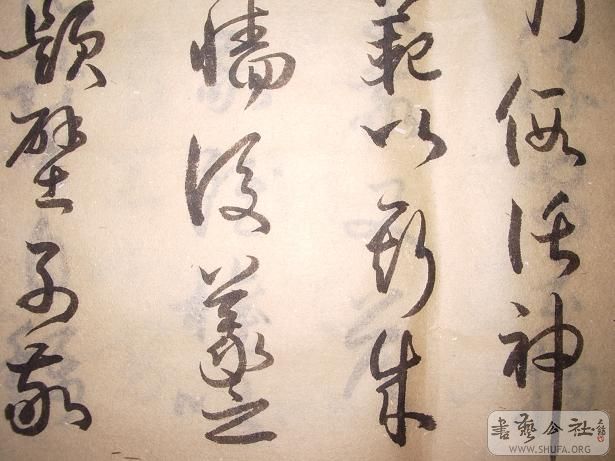 假託神
範以斯成
墻後羲之
題壁子敬
書藝公社
WWW.SHUFA.ORG